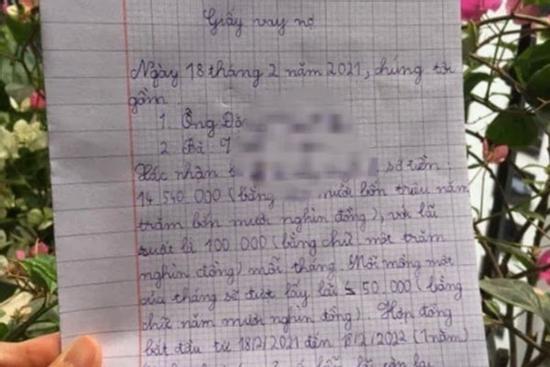 Giấy vay nợ
Ngày 18 tháng 2 năm 2021, chúng tôi
gồm
1. Ông Đà
2. Bà
Xác nhận số tiền:
14 540.000 (bằng mười bốn triệu năm
trăm bốn mươi nghìn đồng), với lãi
suất là 100.000 (bằng chữ: một trăm
nghìn đồng) mỗi tháng. Mỗi mồng một
của tháng sẽ được lấy lãi 50.000 (bằng
chữ năm mươi nghìn đồng). Hợp đồng
bắt đầu từ 18/2/2021 đến 18/2/2022 (1 năm)